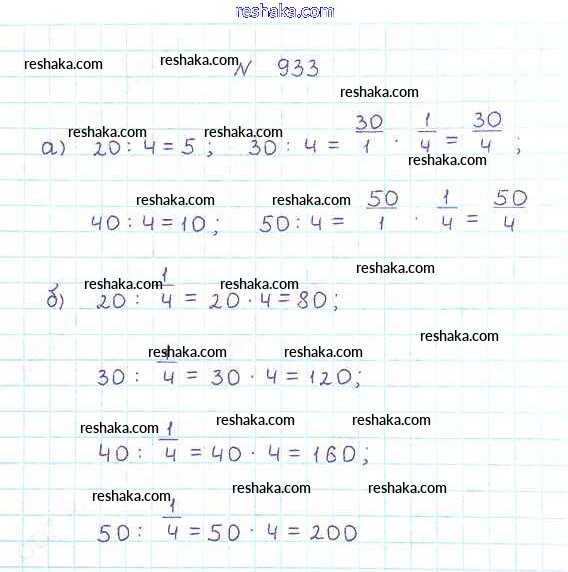 reshaka.com
reshaka.com reshaka.com № 933
reshaka.com
reshaka.com reshaka.com
а) 20 : 4 = 5 ; 30 : 4 = 30/1 · 1/4 = 30/4 ;
reshaka.com
reshaka.com reshaka.com
40 : 4 = 10 ; 50 : 4 = 50/1 · 1/4 = 50/4
reshaka.com
reshaka.com reshaka.com
б) 20 : 1/4 = 20 · 4 = 80 ;
reshaka.com
reshaka.com reshaka.com
30 : 1/4 = 30 · 4 = 120 ;
reshaka.com reshaka.com reshaka.com
40 : 1/4 = 40 · 4 = 160 ;
reshaka.com reshaka.com reshaka.com
50 : 1/4 = 50 · 4 = 200